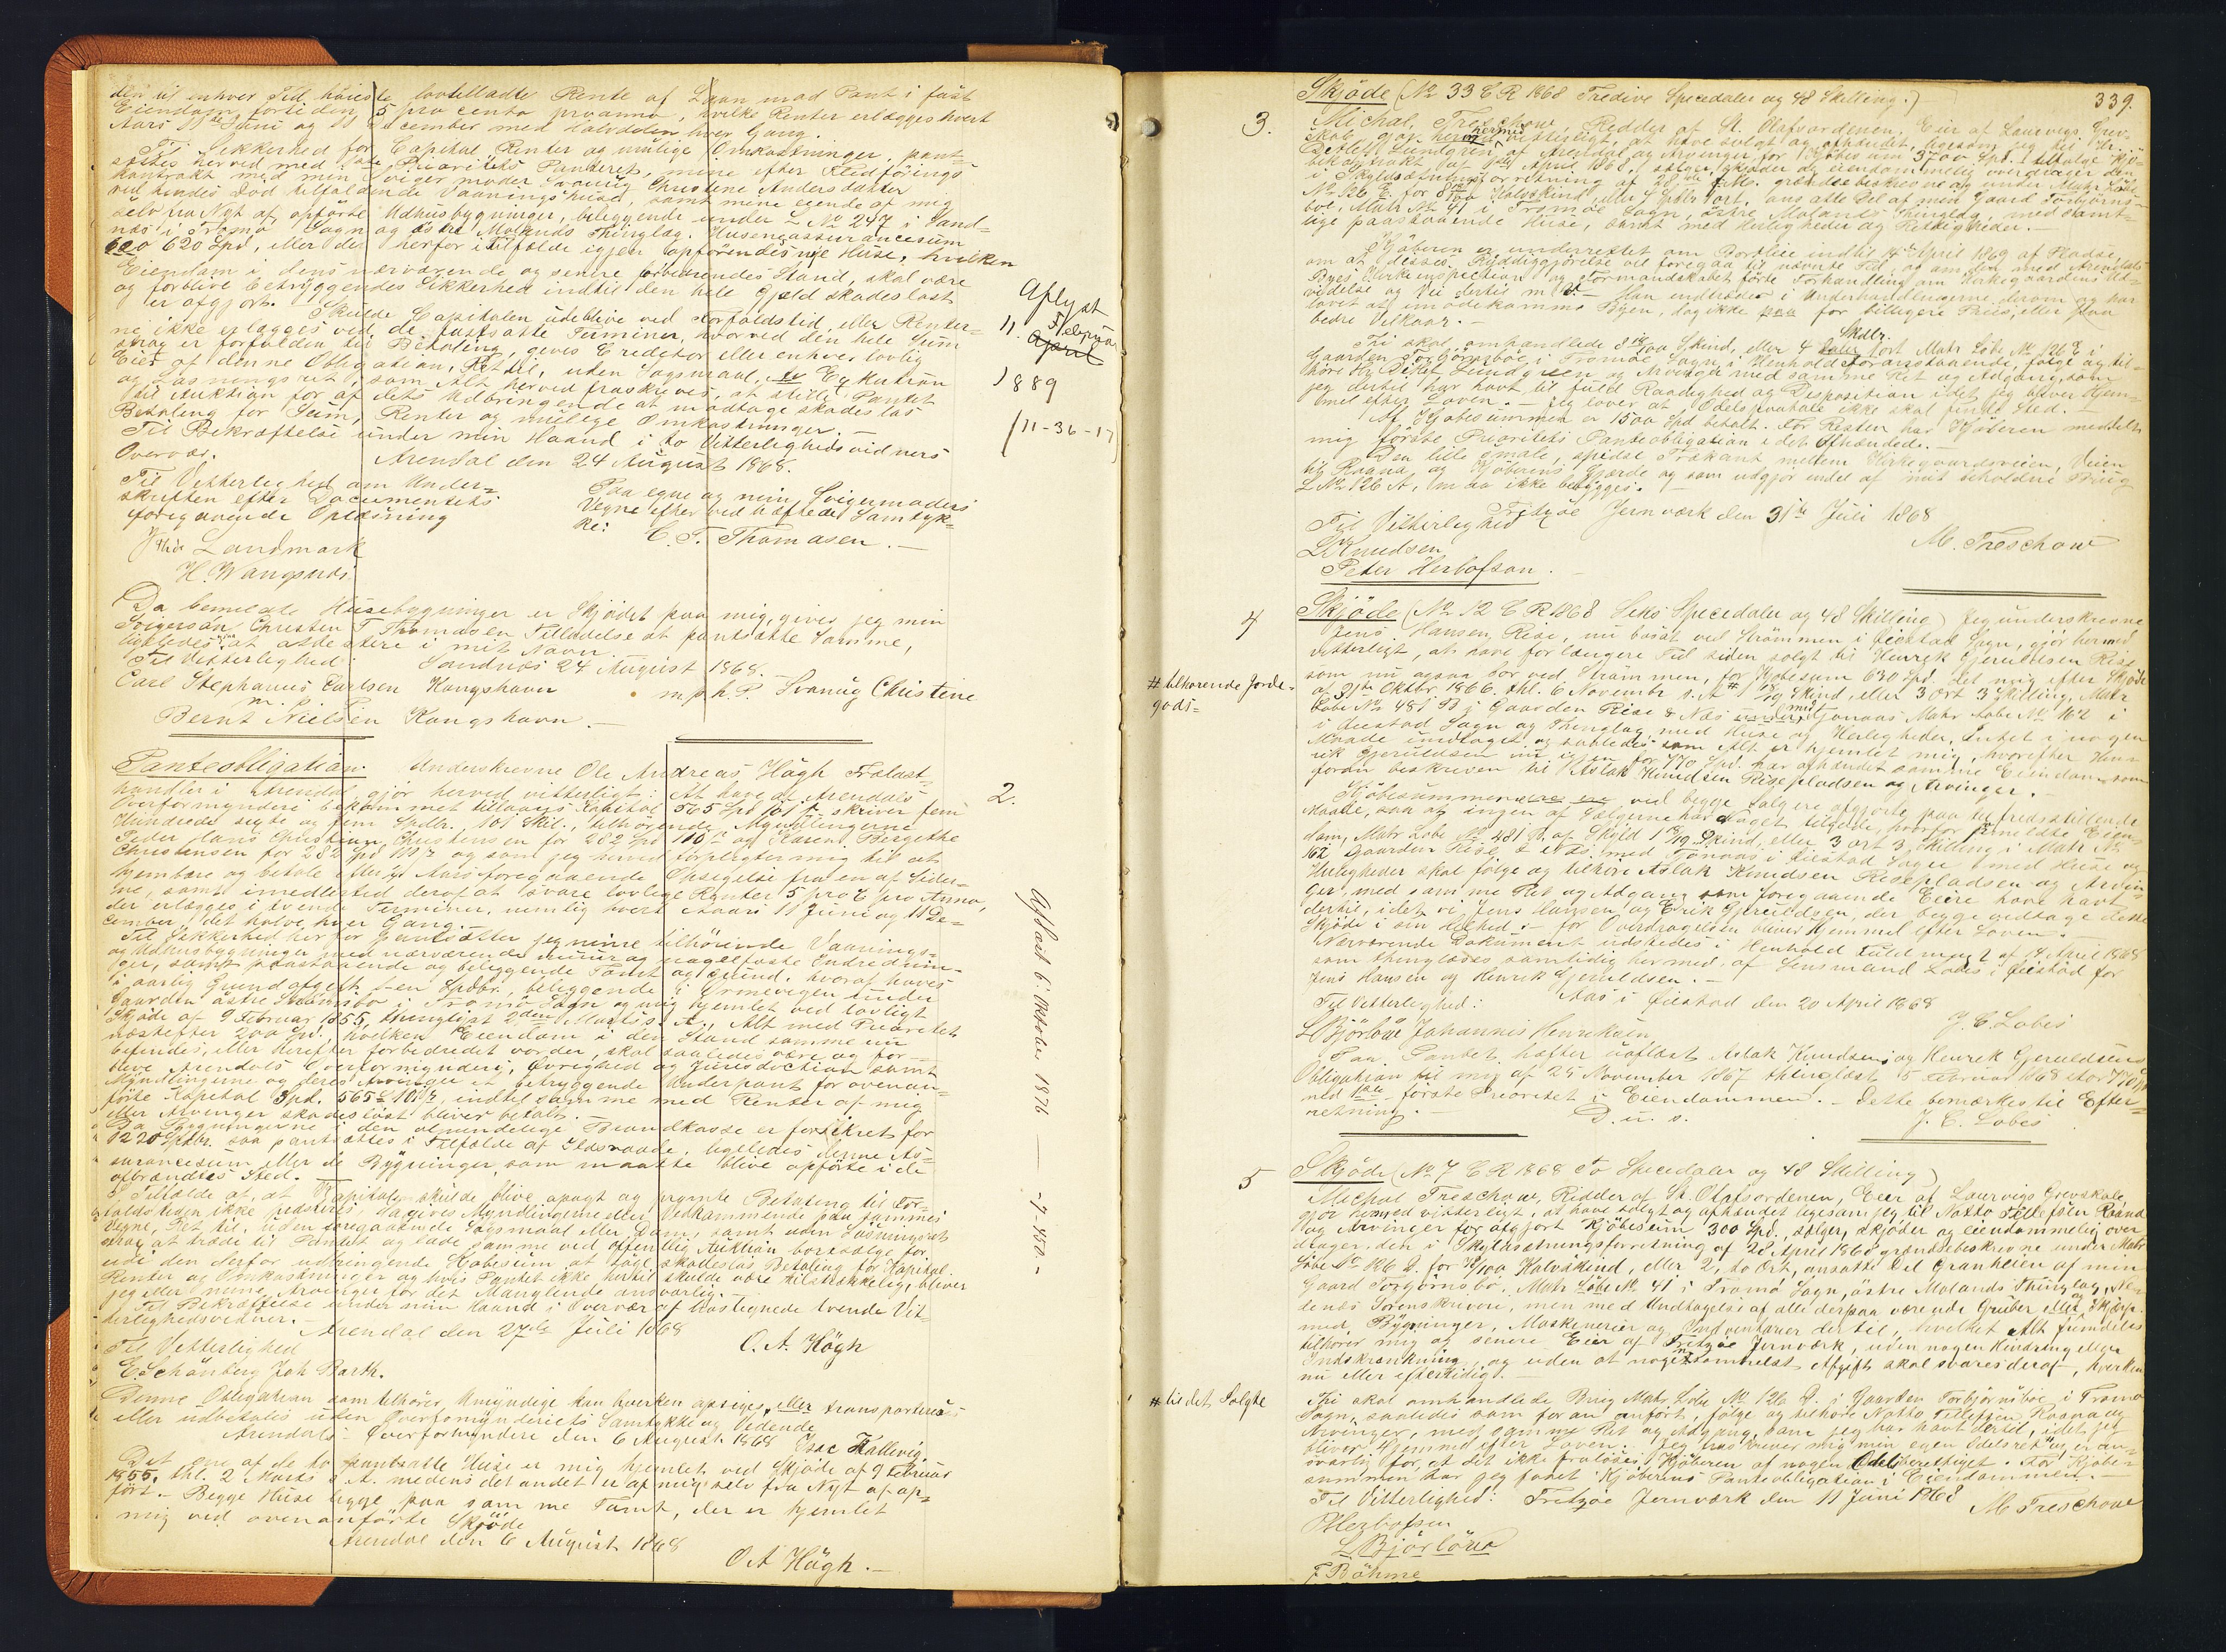 den til enhver Tid høieste lovtilladte Rente af Laan mod Pant i fast
Eiendom fortiden 5 pro cento proanno, hvilke Renter erlægges hvert
Aars 11te Juni og 11 December med Halvdelen hver Gang.
Til Sikkerhed for Capital, Renter og mulige Omkostninger, pant-
sættes herved med 1ste Prioritets Panteret, mine efter Kledførings
kontrakt med min Svigermoder Svanüg Christine Andersdatter
ved hendes Død tilfaldende Vaaningshuse, samt mine eiende af mig
selv fra Nyt af opførte Udhusbygninger, beliggende under L No 247 i Sand-
næs i Tromø Sogn og østre Molands Thinglag. Husenes assurancesum
620 Spd, eller der herfor i Tilfælde igjen opførendes nye Huse, hvilken
Eiendom i dens nærværende og senere forbedrendes Stand, skal være
og forblive betryggendes Sikkerhed indtil den hele Gjæld skadesløst
er afgjort. Skulde Capitalen udeblive ved Forfaldstid, eller Renter-
ne ikke erlægges ved de fastsatte Terminer, hvorved den hele Sum
strax er forfalden til Betaling, gives Creditor eller enhver lovlig
Eier af denne Obligation, Ret til, uden Søgsmaal, Exekution
og Løsningsret, som Alt herved fraskrives, at stille Pantet
til Auktion for af dets Udbringende at modtage skadesløs
Betaling for Sum, Renter og mulige Omkostninger.
Til Bekræftelse under min Haand i to Vitterlighedsvidners
Overvær. Arendal den 24 August 1868.
Til Vitterlighed om Under-
skriften efter Documentets
foregaaende Oplæsning
Paa egne og min Svigermoders
Vegne efter vedhæftede Samtyk-
ke:
C. T. Thomasen.
Landmark
H. Wangsnds
Aflyst
11. Februar
April
1889
(11-36-17
Da bemeldte Husebygninger er Skjødet paa mig, giver jeg min
Svigersøn Christen T Thomasen Tilladelse at pantsætte Samme,
ligeledes at udstedere i mit Navn.
Til Vitterlighed: Sandnæs 24 August 1868.
Carl Stephanus Carlsen Kongshavn m. p. h. P. Svanüg Christine
Bernt Nielsen Kongshavn.
Panteobligation. Underskrevne Ole Andreas Høgh Trælast-
handler i Arendal, gjør herved vitterligt: At have af Arendals
Overformynderi bekommet tillaans Kapital 565 Spd 101 s. skriver fem
Hundrede segte og fem Spdlr. 101 Skil., tilhørende Myndlingerne
Peder Hans Christian Christensen for 282 Spd 110 og Karen Birgethe
Christensen for 282 Spd 111 og som jeg herved forpligter mig til at
hjembære og betale efter ½ Aars foregaaende Opsigelse fra en af Sider-
ne, samt imedlertid deraf at svare lovlige Renter 5 pro C pro Anno,
der erlægges i tvende Terminer, nemlig hvert Aaars 11 Juni og 11 De-
cember, det halve hver Gang.
Til Sikkerhed her for pantsætter jeg mine tilhørende Vaanings-
og Udhusbygninger med nærværende muur og nagelfaste Indrednin-
ger, samt paastaaende og beliggende Tomt og Grund, hvoraf haves
i aarlig Grundafgift en Spdlr., beliggende i Ørmevigen under
Gaarden østre Stuensbo i Tromø Sogn og mig hjemlet ved lovligt
Skjøde af 9 Februar 1855, thinglyst 2den Marts s. A., Alt med Prioritet
næstefter 200 Spd, hvilken Eiendom i den Stand samme nu
befindes, eller herefter forbedredet vorder, skal saaledes være og for-
blive Arendals Overformynderi, Øvrighed og Jurisdiction samt
Myndlingerne og deres Arvinger et betryggende Underpant for ovenan-
førte Kapital Spd. 565 101 s, indtil samme med Renter af mig
eller Arvinger skadesløst bliver betalt.
Da Bygningerne i den almindelige Brandkasse er forsikret for
1220 Spdlr. saa pantsættes i Tilfælde af Ildsvaade, ligeledes denne As-
surancesum eller de Bygninger, som maatte blive opførte i de
afbrændtes Sted.
I Tilfælde af, at Kapitalen skulde blive opsagt og promte Betaling til For-
faldstiden ikke præsteres, tilgives Myndlingerne eller Vedkommende paa sammes
Vegne, Ret til, uden foregaaende Søgsmaal eller Dom, samt uden Løsningsret
strax at træde til Pantet og lade samme ved offentlig Auktion bortsælge for
udi den derfor udbringende Kjøbesum at søge skadesløs Betaling for Kapital,
Renter og Omkostninger og hvis Pantet ikke hertil skulde være tilstrækkelig, bliver
jeg eller mine Arvinger for det Manglende ansvarlig.
Til Bekræftelse under min Haand i Overvær af undertegnede tvende Vit-
terlighedsvidner. Arendal den 27de Juli 1868
Til Vitterlighed O. A. Høgh
E. Schønberg Joh Barth.
Denne Obligation som tilhører Umyndige kan hverken opsiges, eller transporteres
eller udbetales uden Overformynderiets Samtykke og Vidende
Arendals Overformynderi den 6 August 1868 Isac Kallevig
Det ene af de to pantsatte Huse er mig hjemlet ved Skjøde af 9 Februar
1855, thl. 2 Marts s A. medens det andet er af mig selv fra Nyt af op-
ført. Begge Huse ligge paa samme Tomt, der er hjemlet
mig ved ovenanførte Skjøde
Arendal den 6 August 1868
O. A Høgh.
2.
Aflæst 6. Oktober 1876 — -7-450-
339.
3. Skjøde (No 33 C R 1868 Tredive Speciedaler og 48 Skilling.)
Michal, Treschow, Ridder af St. Olafsordenen, Eier af Laurvigs Grev-
skab, gjør hermed vitterligt, at have solgt og afhændet, ligesom jeg til Hr.
Detlef Lundgren af Arendal og Arvinger, for Kjøbesum 3700 Spd. i tilfølge Kjø-
bekontrakt af April 1868, sælger, skjøder og eiendommelig overdrager den
i Skyldsætningsforretning af 28de f. M. grændsebeskrevne og under Matr Løbe
No 126 E for 8 Halvskind, eller 4 Spdlr 1 ort, ansatte Del af min Gaard Torbjørns-
boe, Matr No 41 i Tromøe Sogn, østre Molands Thinglag, med samt-
lige paastaaende Huse, samt med Herligheder og Rettigheder.
Kjøberen er underrettet om Bortleie indtil 14 April 1869 af Pladse,
om at disses Ryddiggjørelse vil foregaa til nævnte Tid, og om den med Arendals
Byes Kirkeinspection og Formandskabet førte Forhandling om Kirkegaardens Ud-
videlse og Vei dertil m. V. Han indtræder i Underhandlingerne derom og har
lovet at imødekomme Byen, dog ikke for billigere Priis, eller paa
bedre Vilkaar.
Thi skal omhandlede 8 Skind, eller 4 Skdlr. 1 ort Matr Løbe No 126 E i
Gaarden Torbjørnsboe, i Tromøe Sogn, i Henhold Foranstaaende, følge og til-
høre Hr. Detlef Lundgren og Arvinger med samme Ret og Adgang, som
jeg dertil har havt til fuld Raadighed og Disposition idet jeg bliver Hjem-
mel efter Loven. Jeg lover at Odelspaatale ikke skal finde Sted.
Af Kjøbesummen er 1500 Spd betalt. For Resten har Kjøberen meddelt
mig første Prioritets Panteobligation i det Afhændede.
Den lille smale, spidse Trekant mellem Kirkegaardsveien, Veien
til Roana, og Kjøberens Gjerde og som udgjør endel af mit beholdne Brug
L No 126 A, maa ikke bebygges.
Fritzøe Jernværk den 31te Juli 1868
Til Vitterlighed M. Treschow
L Knudsen
Peter Herlofson.
4 Skjøde (No 12 C R 1868 Seks Speciedaler og 48 Skilling) Jeg underskrevne
Jens Hansen Rise, nu bosat ved Strømmen i Øiestad Sogn, gjør hermed
vitterligt, at have for længere Tid siden solgt til Henrik Gjeruldsen Rise
som nu ogsaa bor ved Strømmen, for Kjøbesum 630 Spd. det mig efter Skjøde
af 31te Oktbr. 1866. thl. 6 November s. A # 1 Skind, eller 3 Ort 3 Skilling, Matr
Løbe No 481 B i Gaarden Rise & Næs med Tjønaas Matr Løbe No 162 i
Øiestad Sogn og Thinglag, med Huse og Herligheder, Intet i nogen
Maade undtaget og saaledes som Alt er hjemlet mig, hvorefter Hen-
rik Gjeruldsen nu igjen for 770 Spd. har afhændet samme Eiendom, som
foran beskreven til Aslak Knudsen Risepladsen og Arvinger.
# tilhørende Jorde-
gods=
Kjøbesummen er ved begge Salgene afgjorte paa tilfredsstillende
Maade, saa at ingen af Sælgerne har Noget tilgode, hvorfor bemeldte Eien-
dom, Matr Løbe No 481 B. af Skyld 1 Skind, eller 3 ort 3 Skilling i Matr No
162, Gaarden Rise & Næs med Tjønaas i Øiestad Sogn med Huse og
Herligheder skal følge og tilhøre Aslak Knudsen Risepladsen og Arvin-
ger, med samme Ret og Adgang som foregaaende Eiere have havt
dertil, idet vi Jens Hansen og Henrik Gjeruldsen, der begge vedtage dette
Skjøde i sin Helhed for Overdragelsen bliver Hjemmel efter Loven.
Nærværende Dokument udstedes i Henhold Fuldmagt af 14 April 1868
som thinglæses samtidig hermed, af Lensmand Lobes i Øiestad for
Jens Hansen og Henrik Gjeruldsen.
Aas i Øiestad den 20 April 1868
Til Vitterlighed: J. C. Lobes
L Bjørløw Johannis Henriksen
Paa Pantet hæfter uaflæst Aslak Knudsens og Henrik Gjeruldsens
Obligation til mig af 25 November 1867 thinglæst 5 Februar 1868 stor 770 Spd
med 1ste første Prioritet i Eiendommen. Dette bemærkes til Efter-
retning. D. u. s. J. C. Lobes
5 Skjøde (No 7 C R 1868 to Speciedaler og 48 Skilling)
Michal Treschow, Ridder af St. Olafsordenen, Eier af Laurvigs Grevskab,
gjør herved vitterligt, at have solgt og afhændet ligesom jeg til Natto Tellefsen Roana
og Arvinger for afgjort Kjøbesum 300 Spd., sælger, skjøder og eiendommelig over
drager, den i Skyldsætningsforretning af 28 April 1868 grændsebeskrevne under Matr
Løbe No 126 D. for Halvskind, eller 2, to Ort, ansatte Del Granheien af min
Gaard Torbjørnsbø. Matr Løbe No 41 i Tromø Sogn, østre Molands Thinglag, Ne-
denæs Sorenskriveri, men med Undtagelse af alle derpaa værende Gruber eller Skjærp
med Bygninger, Maskinerier og Inventarier dertil, hvilket Alt fremdeles
tilhører mig og senere Eier af Fritzøe Jernværk, uden nogen Hindring eller
Indskrænkning, og uden at nogensomhelst Afgift skal svares deraf, hverken
nu eller eftertidig.
Thi skal omhandlede Brug Matr Løbe No 126 D. i Gaarden Torbjørnsboe i Tromø
Sogn, saaledes som foran anført, følge og tilhøre Natto Tellefsen Roana og
Arvinger, med samme Ret og Adgang, som jeg har havt dertil, idet jeg
bliver Hjemmel efter Loven. Jeg mig min egen Odelsret og er an-
svarlig for, at det ikke fraløses Kjøberen af nogen Odelsberettiget. For Kjøbe-
summen har jeg faaet Kjøberens Panteobligation i Eiendommen.
# til det Solgte
Til Vitterlighed: Fritzøe Jernværk den 11 Juni 1868 M Treschow
P Herlofsen
L Bjørløw
F Bøhme